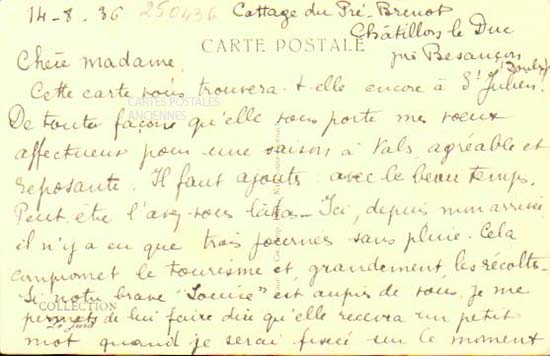 14-8-36 250436 Cottage du Pré-Brenot
Châtillon le Duc
CARTE POSTALE
près Besançon
(Doubs)
Chère madame,
Cette carte vous trouvera-t-elle encore à St Julien.
CARTES POSTALES
ANCIENNES
De toutes façons qu'elle vous porte mes vœux
affectueux pour une saison à Vals, agréable et
reposante. Il faut ajouter avec le beau temps.
Peut être l'avez-vous là-bas - Ici, depuis mon arrivée
il n'y a eu que trois journées sans pluie. Cela
compromet le tourisme et, grandement, les récoltes-
Si notre brave "Louise" est auprès de vous, je me
COLLECTION
Le Jura
permets de lui faire dire qu'elle recevra un petit
mot quand je serai fixée sur le moment